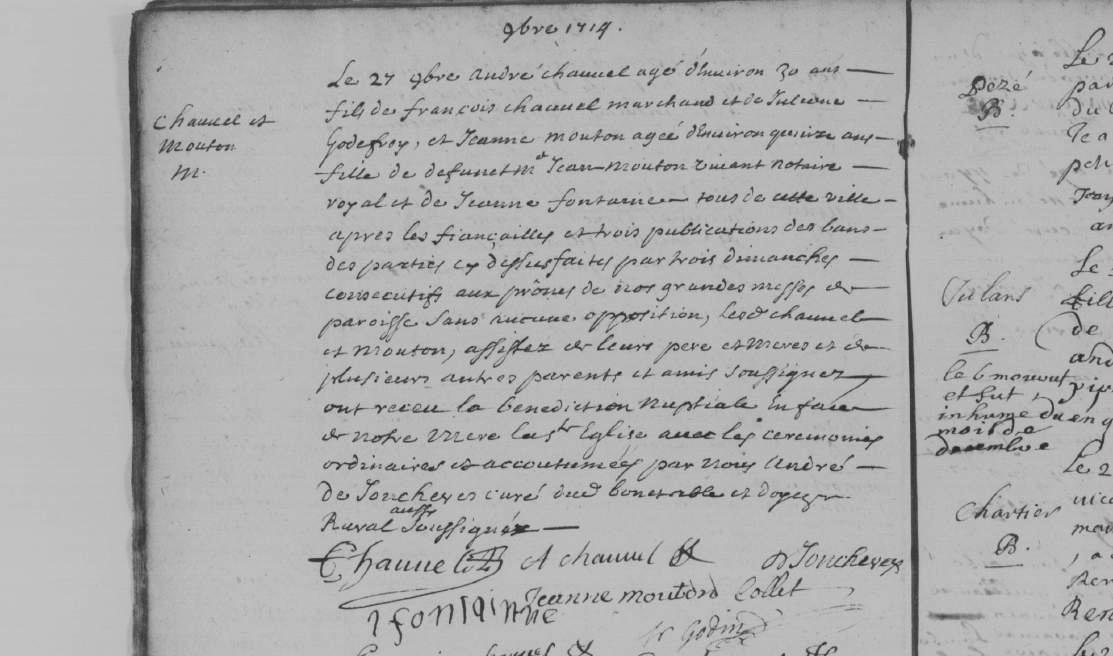 9bre 1714.
Chauvel et
Mouton
M.
Le 27 9bre André chauvel agé d'Environ 30 ans
fils de françois chauvel marchand et de Julienne
Godefroy, et Jeanne mouton ageé d'Environ quinze ans
fille de defunct Me Jean mouton vivant notaire
royal et de Jeanne fontaine tous de cette ville
apres les fiançailles et trois publications des bans
des parties cy dessus faites par trois dimanches
consecutifs aux prônes de nos grandes messes de
paroisse sans aucune opposition, lesd chauvel
et Mouton, assistez de leurs pere et meres et de
plusieurs autres parents et amis soussignez,
ont receu la benediction Nuptiale En face
de Notre Mere la ste Eglise avec les ceremonies
ordinaires et accoutumées par Nous André
De Joncheres curé dud bonetable et doyen
Rural aussy soussignéz
Chauvel A chauvel D Joncheres
Jeanne mouton Collet
I fontainne
fr Godin
Pezé
B.
Le 2
par
du
Julans
B.
le 6 mourut
et fut
inhume du
mois de
decembre
Le
fille
de
and
Chartier
B.
Le 2
vica
Ren
Rene